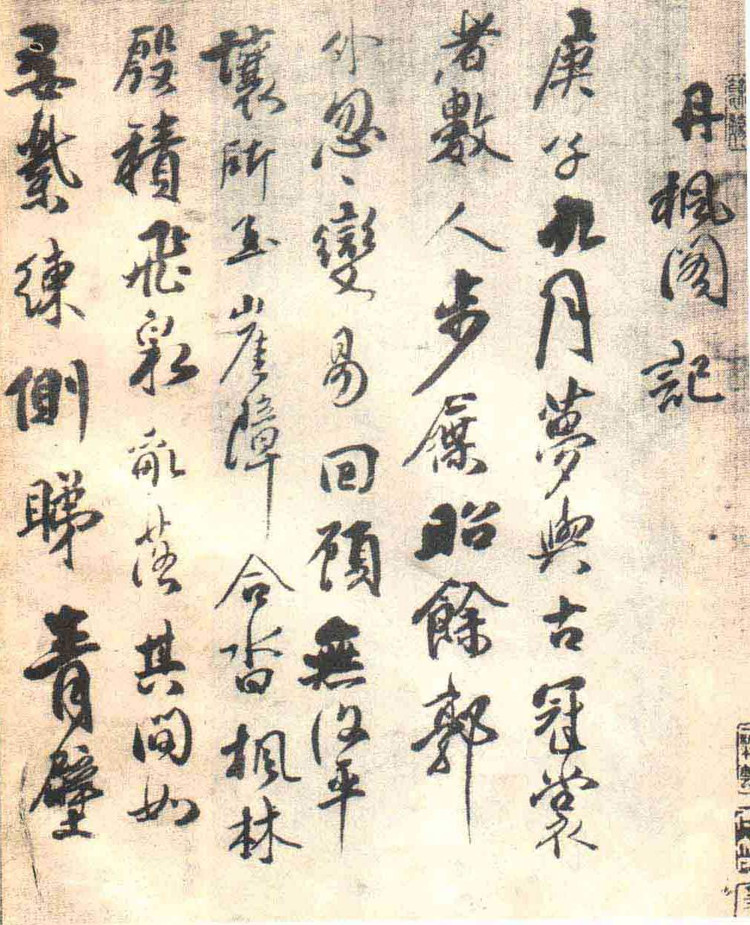 丹楓閣記
庚子九月夢與古冠裳
者數人步屧昭餘郭
外忽〻變易回顧無復平
壤所至崖障合沓楓林
殷積飛泉亂落其間如
縶練側睇青壁